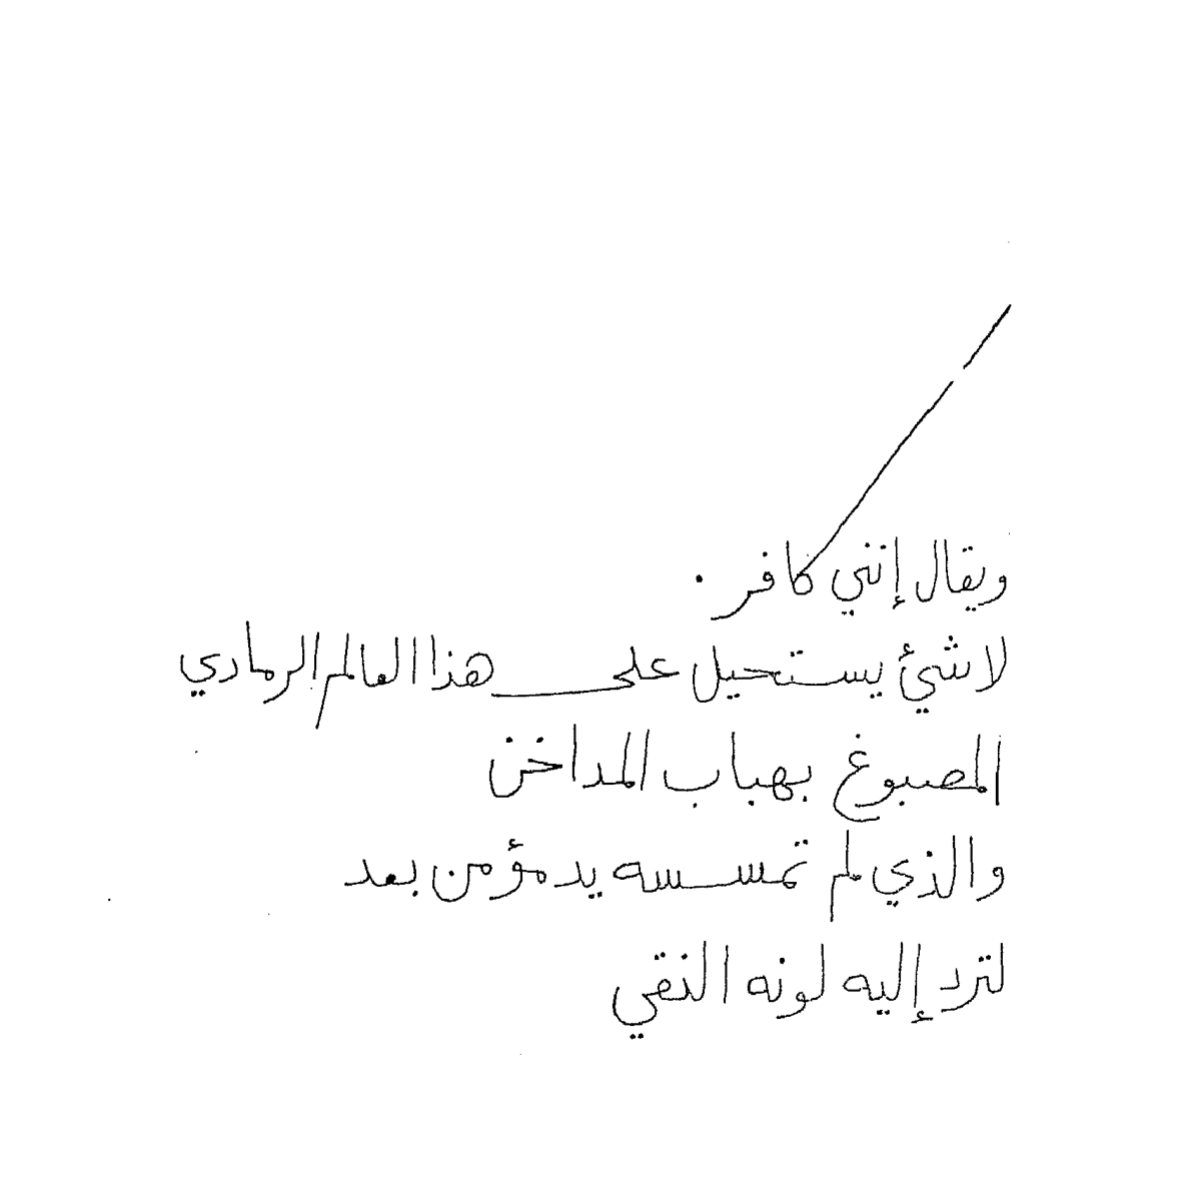 ويقال إنني كافر .
لا شيئ يستحيل على هذا العالم الرمادي
المصبوغ بهباب المداخن
والذي لم تمسسه يد مؤمن بعد
لترد إليه لونه النقي